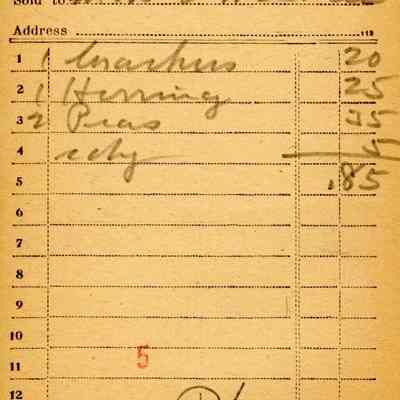 Sold to
Address
1 1 Crackers 20
2 1 Herring 25
3 2 Peas 35
4 5
5 .85
6
7
8
9
10
5
11
12